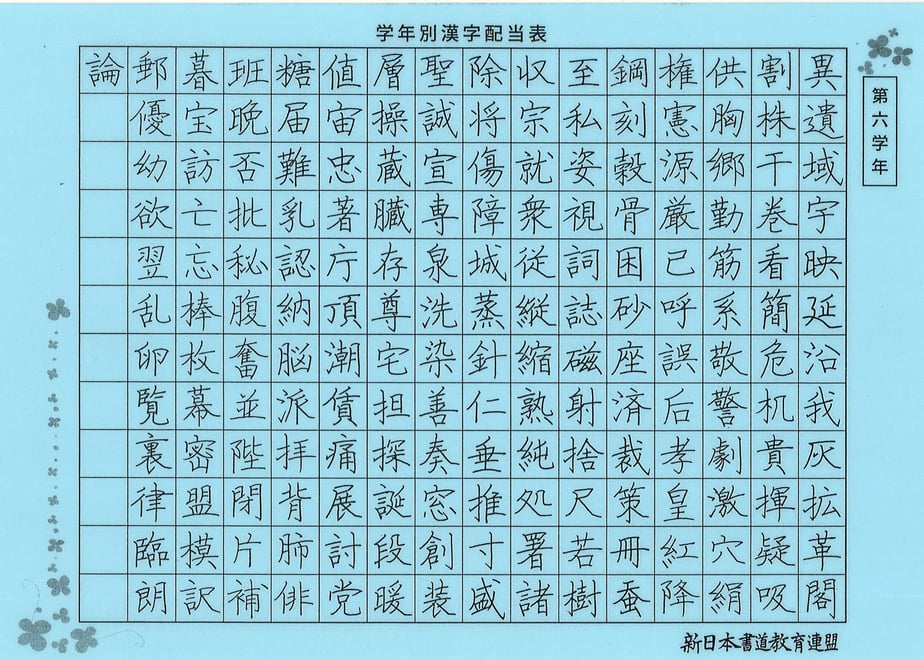 学年別漢字配当表
第六学年
異遺域宇映延沿我灰拡革閣
割株干巻看簡危机貴揮疑吸
供胸郷勤筋系敬警劇激穴絹
権憲源厳己呼誤后孝皇紅降
鋼刻穀骨困砂座済裁策冊蚕
至私姿視詞誌磁射捨尺若樹
収宗就衆従縦縮熟純処署諸
除将傷障城蒸針仁垂推寸盛
聖誠宣専泉洗染善奏窓創装
層操蔵臓存尊宅担探誕段暖
値宙忠著庁頂潮賃痛展討党
糖届難乳認納脳派拝背肺俳
班晩否批秘腹奮並陛閉片補
暮宝訪亡忘棒枚幕密盟模訳
郵優幼欲翌乱卵覧裏律臨朗
論
新日本書道教育連盟